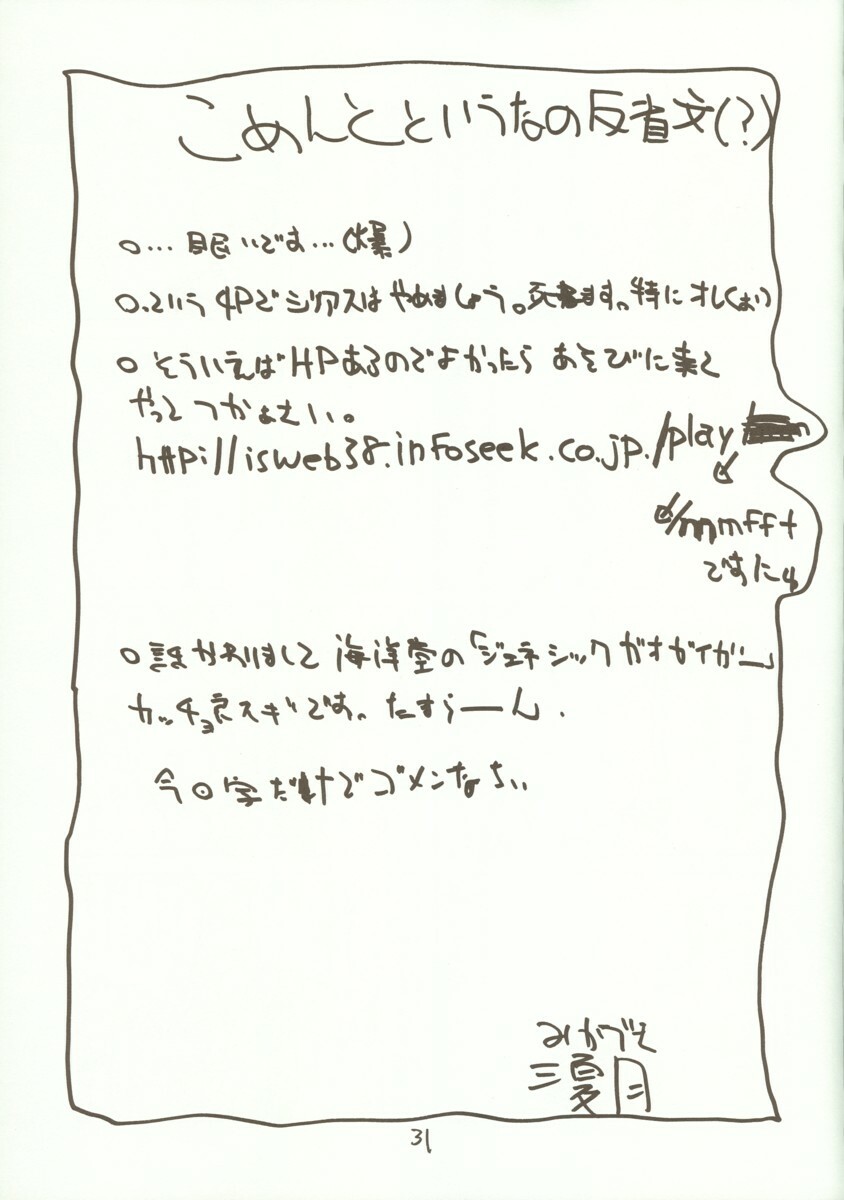 こめんとというなの反省文(?)
○…眠いです…(爆)
○.という4Pでジアスはやめましょう。死ねます。特にオレ(ぉぃ)
○そういえばHPあるのでよかったらあそびに来て
やってつかぁさい。
http://isweb38.infoseek.co.jp./play
/mmfft
ですにゅ
○誰かおりまして海洋堂の「ジェネシックガオガイガー」
カッチョ良スギです。たすらーん.
今回字だけでゴメンなさい
みかづき
三夏月
31